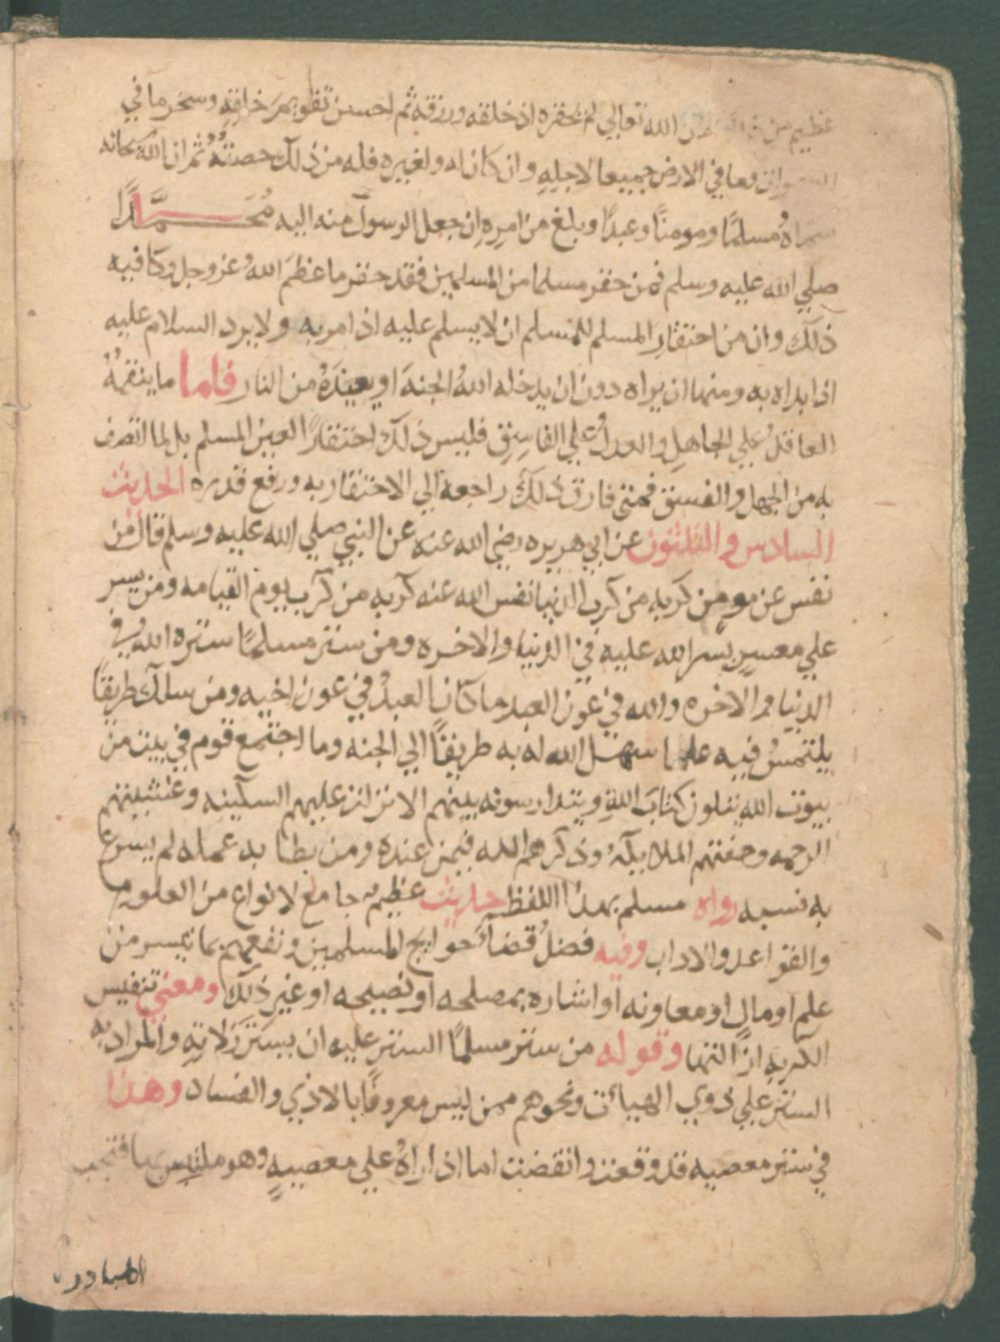 عظيم من الله تعالي لم يحقره اذ خلقه ورزقه ثم احسن تقويم خلقه وسخر ما في
السموات وما في الارض جميعا لاجله وان كان له ولغيره فله من ذلك حصته ثم ان الله سبحانه
سماه مسلما ومومنا وعبدا وبلغ من امره ان جعل الرسول منه اليه محمدا
صلي الله عليه وسلم فمن حقر مسلما من المسلمين فقد حقر ما عظم الله عز وجل وكافيه
ذلك وان من احتقار المسلم للمسلم ان لا يسلم عليه اذا مر به ولا يرد السلام عليه
اذا بداه به ومنها ان يراه دون ان يدخله الله الجنه او يبعده من النار فاما ما ينقمه
العاقل علي الجاهل والعدل علي الفاسق فليس ذلك احتقارا لعين المسلم بل لما اتصف
به من الجهل والفسق فمتي فارق ذلك راجعه الي الاحتفار به ورفع قدره الحديث
السادس والثلثون عن ابي هريره رضي الله عنه عن النبي صلي الله عليه وسلم قال من
نفس عن مومن كربه من كرب الدنيا نفس الله عنه كربه من كرب يوم القيامه ومن يسر
علي معسر يسر الله عليه في الدنيا والاخره ومن ستر مسلما ستره الله في
الدنيا والاخره والله في عون العبد ما كان العبد في عون اخيه ومن سلك طريقا
يلتمس فيه علما سهل الله له به طريقا الي الجنه وما اجتمع قوم في بيت من
بيوت الله يتلون كتاب الله ويتدارسونه بينهم الا نزلت عليهم السكينه وغشيتهم
الرحمه وحفتهم الملايكه وذكرهم الله فيمن عنده ومن بطا به عمله لم يسرع
به نسبه رواه مسلم بهذا اللفظ حديث عظيم جامع لانواع من العلوم
والقواعد والاداب وفيه فضل قضاء حوايج المسلمين ونفعهم بما تيسر من
علم او مال او معاونه او اشاره بمصلحه او نصيحه او غير ذلك ومعني تنفيس
الكربه ازالتها وقوله من ستر مسلما الستر عليه ان يستر زلاته والمراد به
الستر علي ذوي الهيات ونحوهم ممن ليس معروفا بالاذي والفساد وهذا
في ستر معصيه قد وقعت وانقضت اما اذا راه علي معصيه وهو متلبس بها فتجب
المبادره